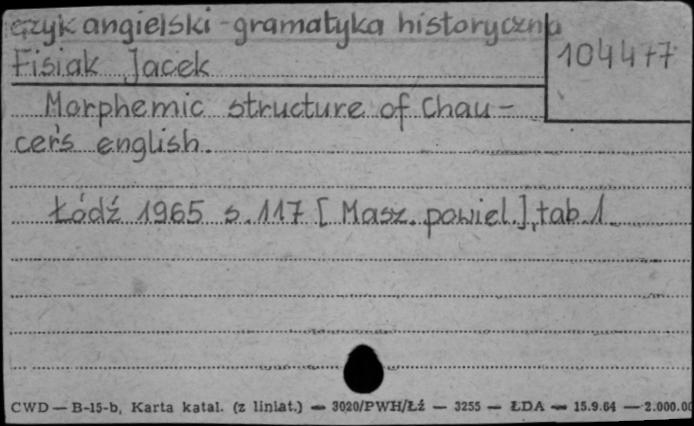 język angielski - gramatyka historyczna
104477
Fisiak Jacek
Morphemic structure of Chau-
cer's english.
Łódź 1965 s. 117 [Masz. powiel.], tab. 1.
CWD — B-15-b, Karta katal. (z liniat.) — 3020/PWH/Łź — 3255 — ŁDA — 15.9.64 — 2.000.00